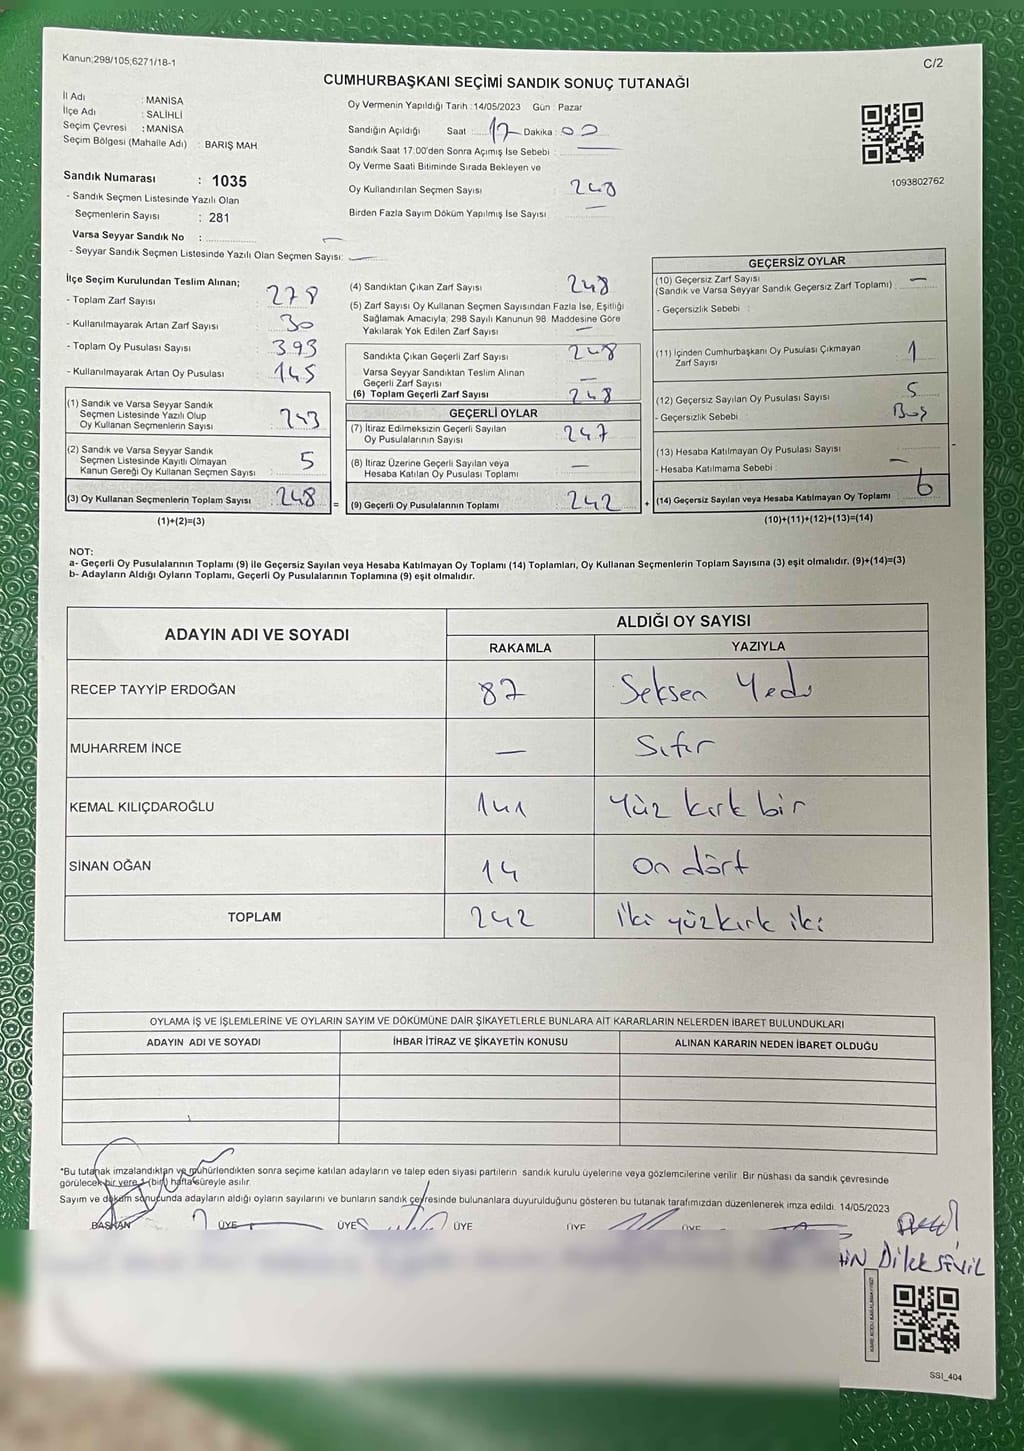 Kanun;298/105,6271/18-1
C/2
CUMHURBAŞKANI SEÇİMİ SANDIK SONUÇ TUTANAĞI
İl Adı : MANİSA
İlçe Adı : SALİHLİ
Seçim Çevresi : MANİSA
Seçim Bölgesi (Mahalle Adı) : BARIŞ MAH
Sandık Numarası : 1035
- Sandık Seçmen Listesinde Yazılı Olan
Seçmenlerin Sayısı : 281
Varsa Seyyar Sandık No :
- Seyyar Sandık Seçmen Listesinde Yazılı Olan Seçmen Sayısı: —
Oy Vermenin Yapıldığı Tarih :14/05/2023 Gün : Pazar
Sandığın Açıldığı Saat : 17 Dakika : 00
Sandık Saat 17.00'den Sonra Açımış İse Sebebi : —
Oy Verme Saati Bitiminde Sırada Bekleyen ve
Oy Kullandırılan Seçmen Sayısı 248
Birden Fazla Sayım Döküm Yapılmış İse Sayısı —
1093802762
İlçe Seçim Kurulundan Teslim Alınan;
- Toplam Zarf Sayısı 278
- Kullanılmayarak Artan Zarf Sayısı 30
- Toplam Oy Pusulası Sayısı 393
- Kullanılmayarak Artan Oy Pusulası 145
(1) Sandık ve Varsa Seyyar Sandık
Seçmen Listesinde Yazılı Olup
Oy Kullanan Seçmenlerin Sayısı 243
(2) Sandık ve Varsa Seyyar Sandık
Seçmen Listesinde Kayıtlı Olmayan
Kanun Gereği Oy Kullanan Seçmen Sayısı 5
(3) Oy Kullanan Seçmenlerin Toplam Sayısı 248 =
(1)+(2)=(3)
(4) Sandıktan Çıkan Zarf Sayısı 248
(5) Zarf Sayısı Oy Kullanan Seçmen Sayısından Fazla İse, Eşitliği
Sağlamak Amacıyla; 298 Sayılı Kanunun 98 Maddesine Göre
Yakılarak Yok Edilen Zarf Sayısı —
Sandıkta Çıkan Geçerli Zarf Sayısı 248
Varsa Seyyar Sandıktan Teslim Alınan
Geçerli Zarf Sayısı —
(6) Toplam Geçerli Zarf Sayısı 248
GEÇERLİ OYLAR
(7) İtiraz Edilmeksizin Geçerli Sayılan
Oy Pusulalarının Sayısı 247
(8) İtiraz Üzerine Geçerli Sayılan veya
Hesaba Katılan Oy Pusulası Toplamı —
(9) Geçerli Oy Pusulalarının Toplamı 242 +
GEÇERSİZ OYLAR
(10) Geçersiz Zarf Sayısı
(Sandık ve Varsa Seyyar Sandık Geçersiz Zarf Toplamı) : —
- Geçersizlik Sebebi :
(11) İçinden Cumhurbaşkanı Oy Pusulası Çıkmayan
Zarf Sayısı 1
(12) Geçersiz Sayılan Oy Pusulası Sayısı 5
- Geçersizlik Sebebi : Boş
(13) Hesaba Katılmayan Oy Pusulası Sayısı
- Hesaba Katılmama Sebebi : —
(14) Geçersiz Sayılan veya Hesaba Katılmayan Oy Toplamı 6
(10)+(11)+(12)+(13)=(14)
NOT:
a- Geçerli Oy Pusulalarının Toplamı (9) ile Geçersiz Sayılan veya Hesaba Katılmayan Oy Toplamı (14) Toplamları, Oy Kullanan Seçmenlerin Toplam Sayısına (3) eşit olmalıdır. (9)+(14)=(3)
b- Adayların Aldığı Oyların Toplamı, Geçerli Oy Pusulalarının Toplamına (9) eşit olmalıdır.
ADAYIN ADI VE SOYADI
ALDIĞI OY SAYISI
RAKAMLA YAZIYLA
RECEP TAYYİP ERDOĞAN 87 Seksen Yedi
MUHARREM İNCE — Sıfır
KEMAL KILIÇDAROĞLU 141 Yüz kırk bir
SİNAN OĞAN 14 On dört
TOPLAM 242 İki yüzkırk iki
OYLAMA İŞ VE İŞLEMLERİNE VE OYLARIN SAYIM VE DÖKÜMÜNE DAİR ŞİKAYETLERLE BUNLARA AİT KARARLARIN NELERDEN İBARET BULUNDUKLARI
ADAYIN ADI VE SOYADI İHBAR İTİRAZ VE ŞİKAYETİN KONUSU ALINAN KARARIN NEDEN İBARET OLDUĞU
*Bu tutanak imzalandıktan ve mühürlendikten sonra seçime katılan adayların ve talep eden siyasi partilerin sandık kurulu üyelerine veya gözlemcilerine verilir. Bir nüshası da sandık çevresinde
görülecek bir yere 1 (bir) hafta süreyle asılır.
Sayım ve döküm sonucunda adayların aldığı oyların sayılarını ve bunların sandık çevresinde bulunanlara duyurulduğunu gösteren bu tutanak tarafımızdan düzenlenerek imza edildi. 14/05/2023
BAŞKAN ÜYE ÜYE ÜYE ÜYE ÜYE
HİN Dilek SEVİL
SSI_404